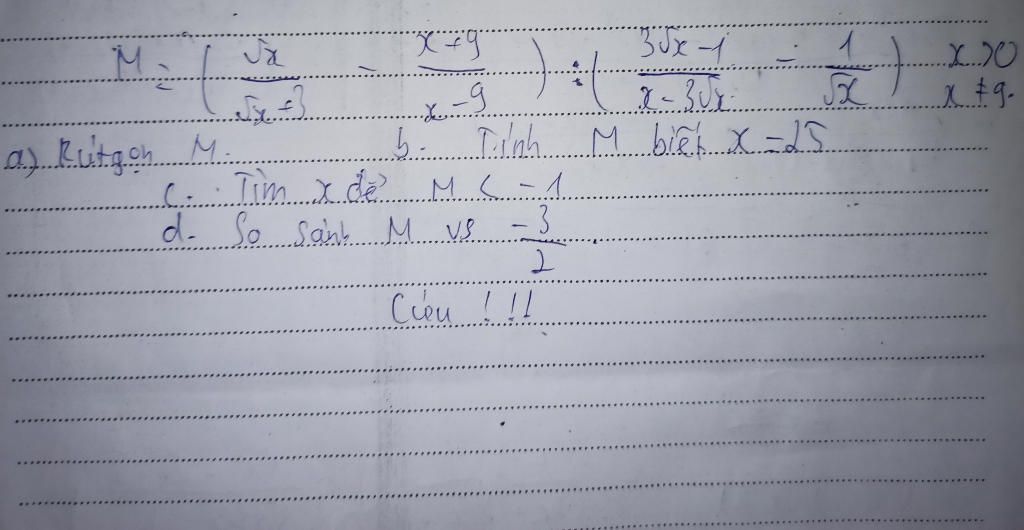 M = ( √x / √x + 3 - x + 9 / x - 9 ) : ( 3√x - 1 / x - 3√x - 1 / √x ) x > 0
x ≠ 9.
a) Rút gọn M. b. Tính M biết x = 25
c. Tìm x để M < -1
d. So sánh M vs -3 / 2 .
Cíeu !!!